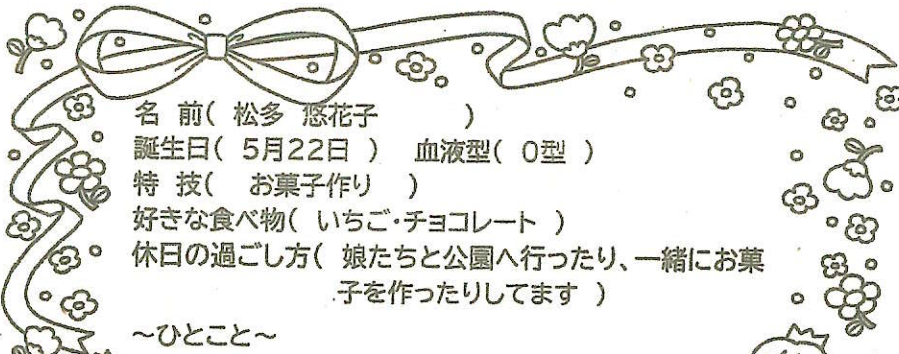 名 前( 松多 悠花子 )
誕生日( 5月22日 ) 血液型( O型 )
特 技( お菓子作り )
好きな食べ物( いちご・チョコレート )
休日の過ごし方( 娘たちと公園へ行ったり、一緒にお菓
子を作ったりしてます )
~ひとこと~